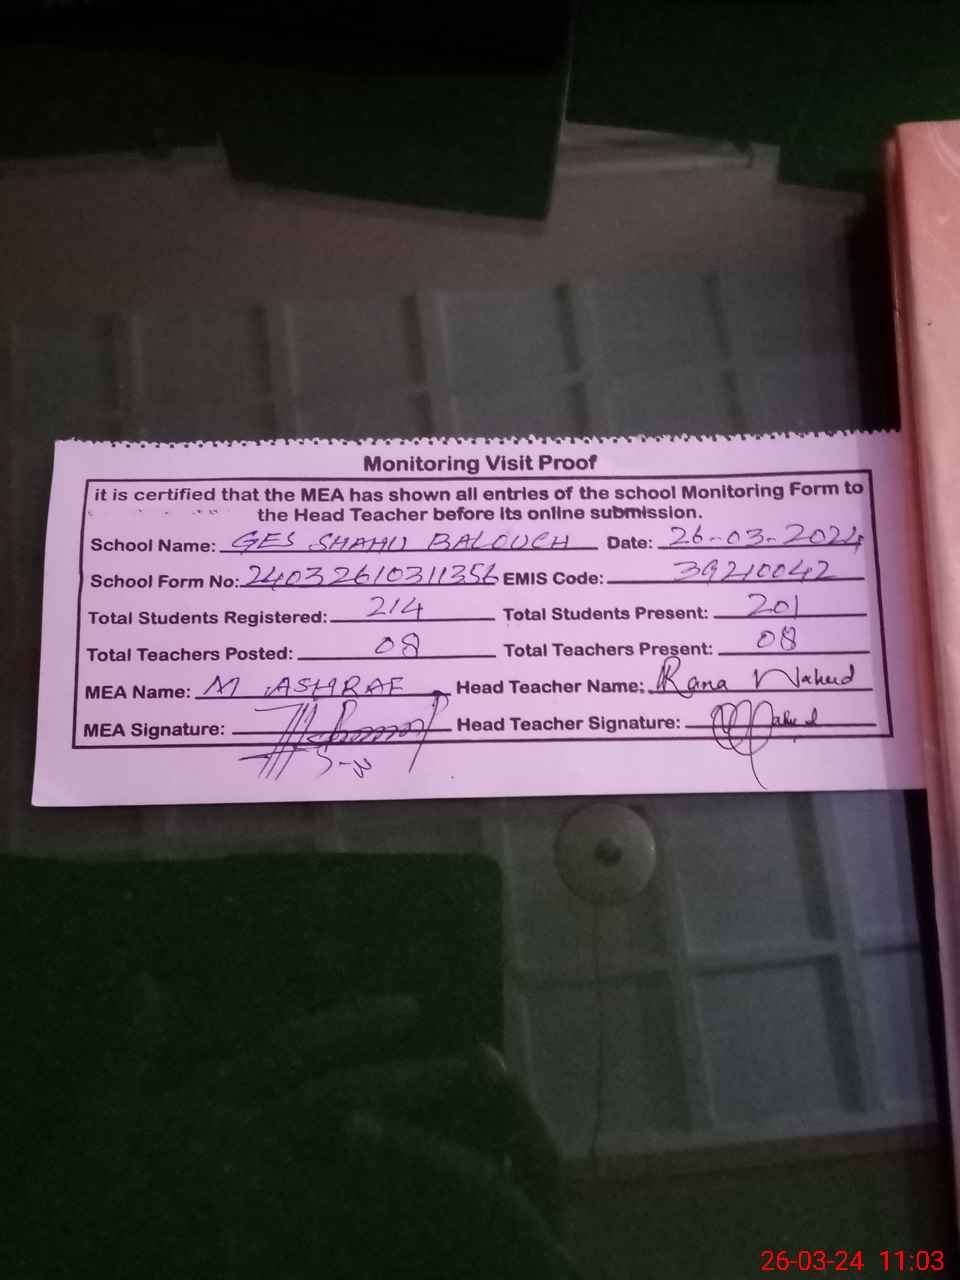 Monitoring Visit Proof
it is certified that the MEA has shown all entries of the school Monitoring Form to
the Head Teacher before its online submission.
School Name: GES SHAHU BALOUCH Date: 26-03-2024
School Form No: 24032610311356 EMIS Code: 39210042
Total Students Registered: 214 Total Students Present: 201
Total Teachers Posted: 08 Total Teachers Present: 08
MEA Name: M ASHRAF Head Teacher Name: Rana Naheed
MEA Signature: Head Teacher Signature:
26-03-24 11:03